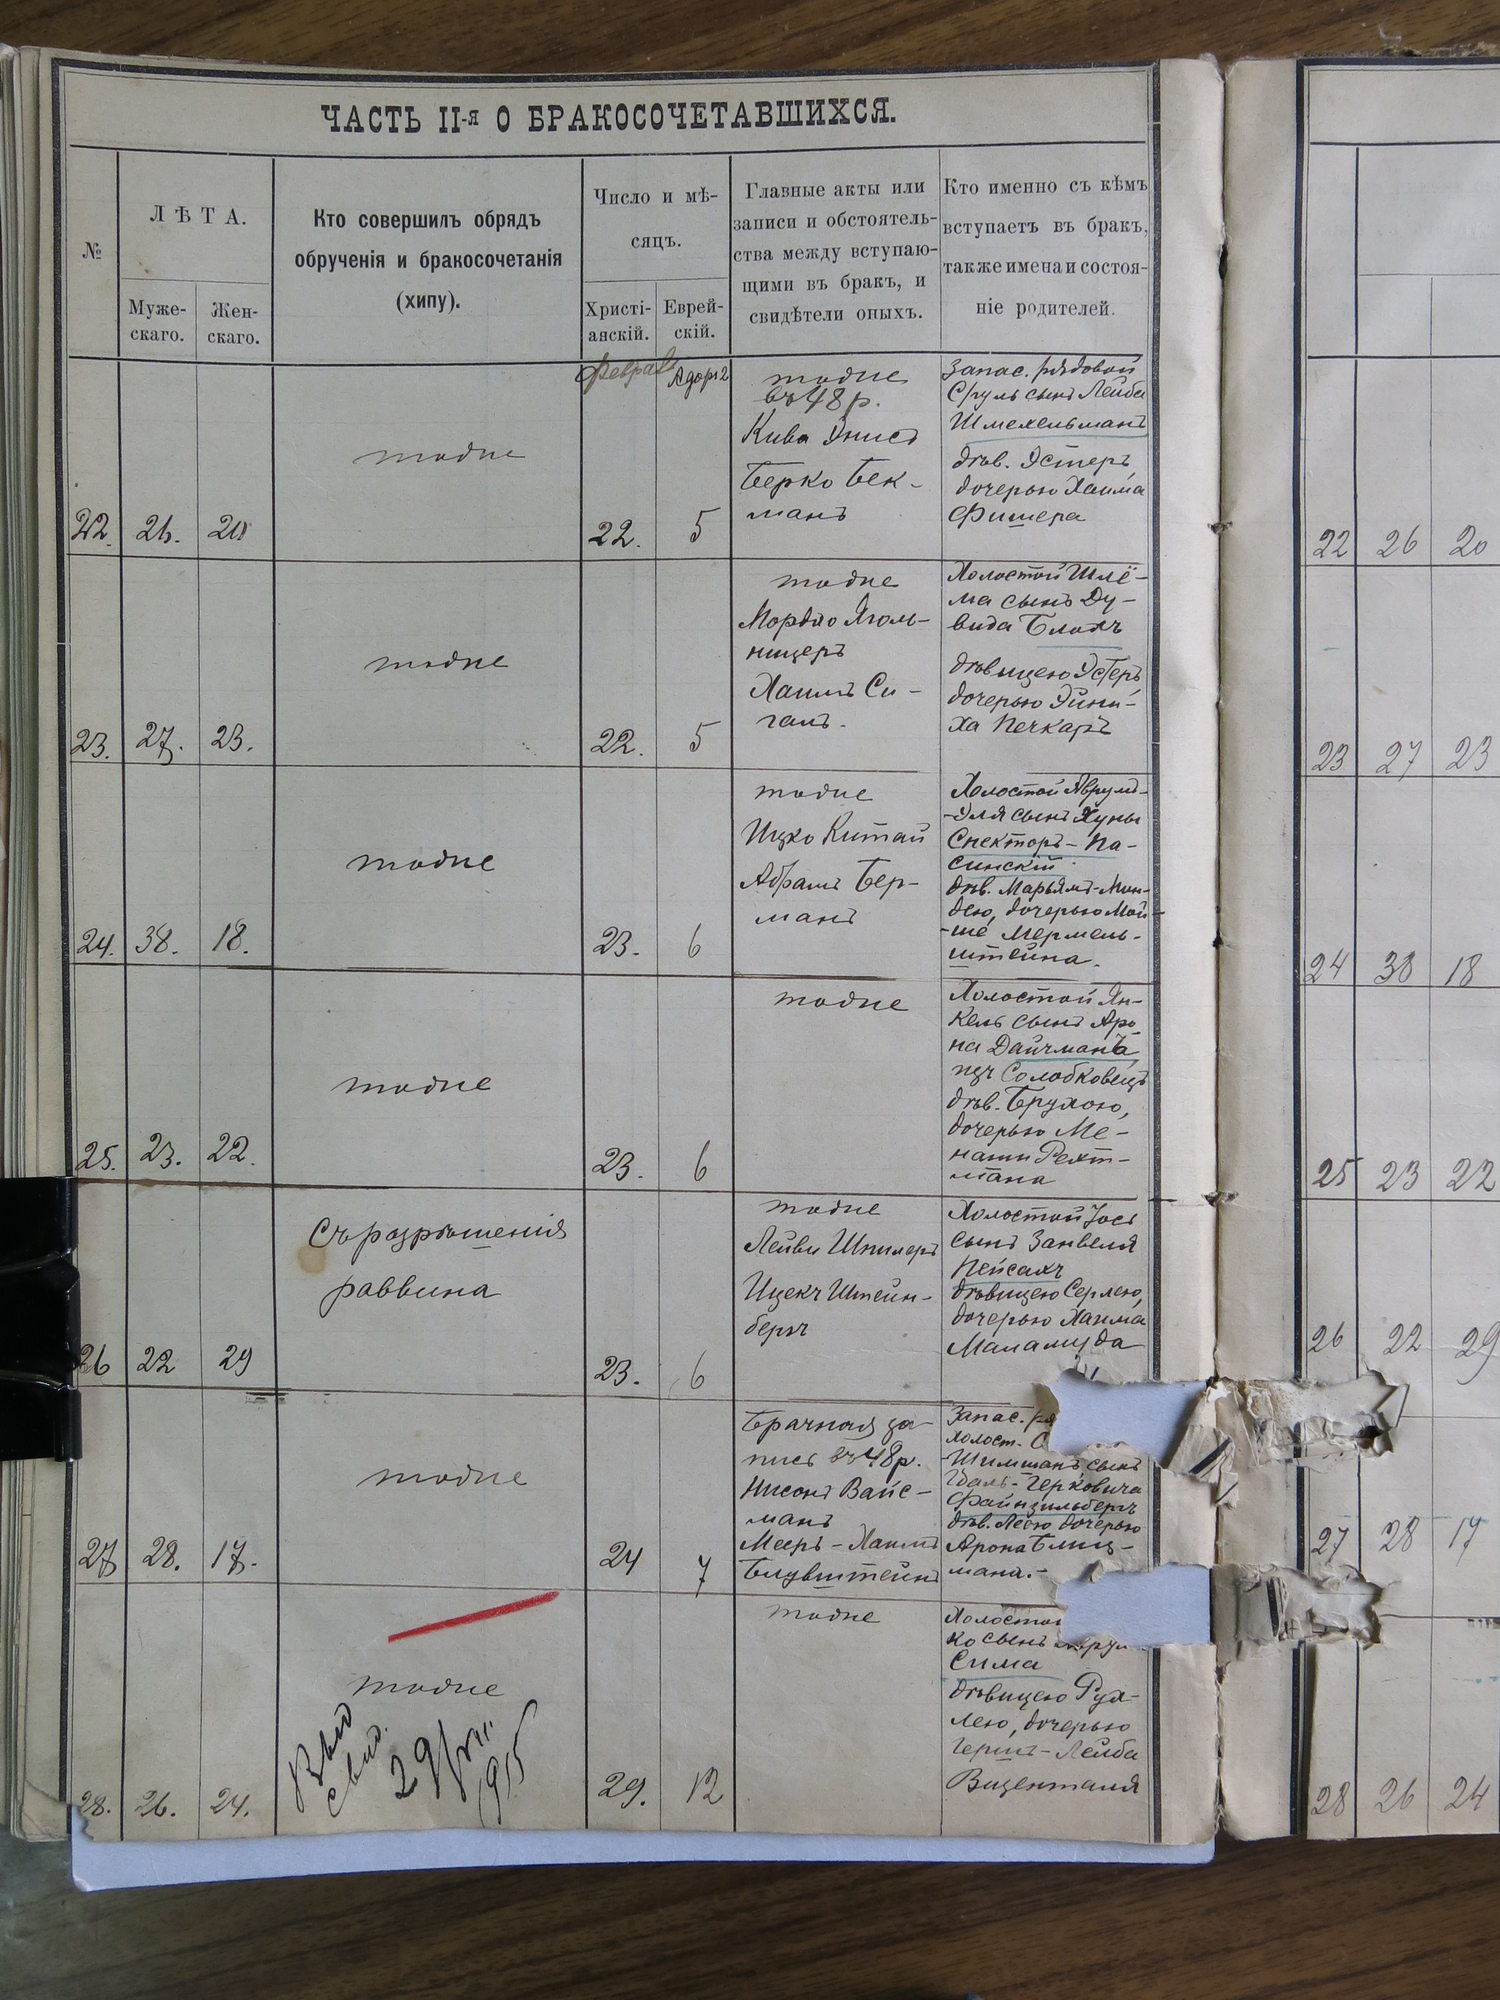 ЧАСТЬ II-я О БРАКОСОЧЕТАВШИХСЯ.
№
ЛѢТА.
Муже-
скаго.
Жен-
скаго.
Кто совершилъ обрядъ
обрученія и бракосочетанія
(хипу).
Число и мѣ-
сяцъ.
Христі-
анскій.
Еврей-
скій.
Главные акты или
записи и обстоятель-
ства между вступаю-
щими въ бракъ, и
свидѣтели оныхъ.
Кто именно съ кѣмъ
вступаетъ въ бракъ,
также имена и состоя-
ніе родителей.
22.
26.
20
тоже
Февраль
22.
Адаръ 2
5
тоже
въ 48 р.
Кива Энисъ
Берко Бек-
манъ
Запас. рядовой
Сруль сынъ Лейба
Шмехельманъ
дѣв. Эстеръ
дочерью Хаима
Фишера
23.
27.
23.
тоже
22.
5
тоже
Мордко Яголь-
ницеръ
Хаимъ Си-
галъ.
Холостой Шлё-
ма сынъ Ду-
вида Блохъ
дѣвицею Эстеръ
дочерью Эйни-
ха Печкаръ
24.
38.
18.
тоже
23.
6
тоже
Ицко Китай
Абрамъ Бер-
манъ
Холостой Аврумъ-
-Эля сынъ Хуны
Спекторъ-Па-
синскій
дѣв. Марьямъ-Мин-
дею, дочерью Мой-
-ше Мермель-
штейна.
25.
23.
22.
тоже
23.
6
тоже
Холостой Ян-
кель сынъ Аро-
на Дайчмана
изъ Солобковецъ
дѣв. Брухою,
дочерью Ме-
наши Рехт-
мана
26
22
29
Съ разрѣшенія
раввина
23.
6
тоже
Лейви Шпилеръ
Ицекъ Штейн-
бергъ
Холостой Іось
сынъ Занвеля
Пейсахъ
дѣвицею Серлею,
дочерью Хаима
Маламуда
27
28.
17.
тоже
24
7
Брачная за-
пись въ 48 р.
Нисонъ Вайс-
манъ
Мееръ-Хаимъ
Блувштейнъ
Запас. ря
холост. С
-Шимшанъ сынъ
Берковича
Файнзильбергъ
дѣв. Лею дочерью
Арона Блиц-
мана.-
28.
26.
24.
тоже
29.
12
тоже
Холостой
ко сынъ
Сима
дѣвицею Рух-
лею, дочерью
Гершъ-Лейба
Виценталя
22 26 20
23 27 23
24 38 18
25 23 22
26 22 29
27 28 17
28 26 24